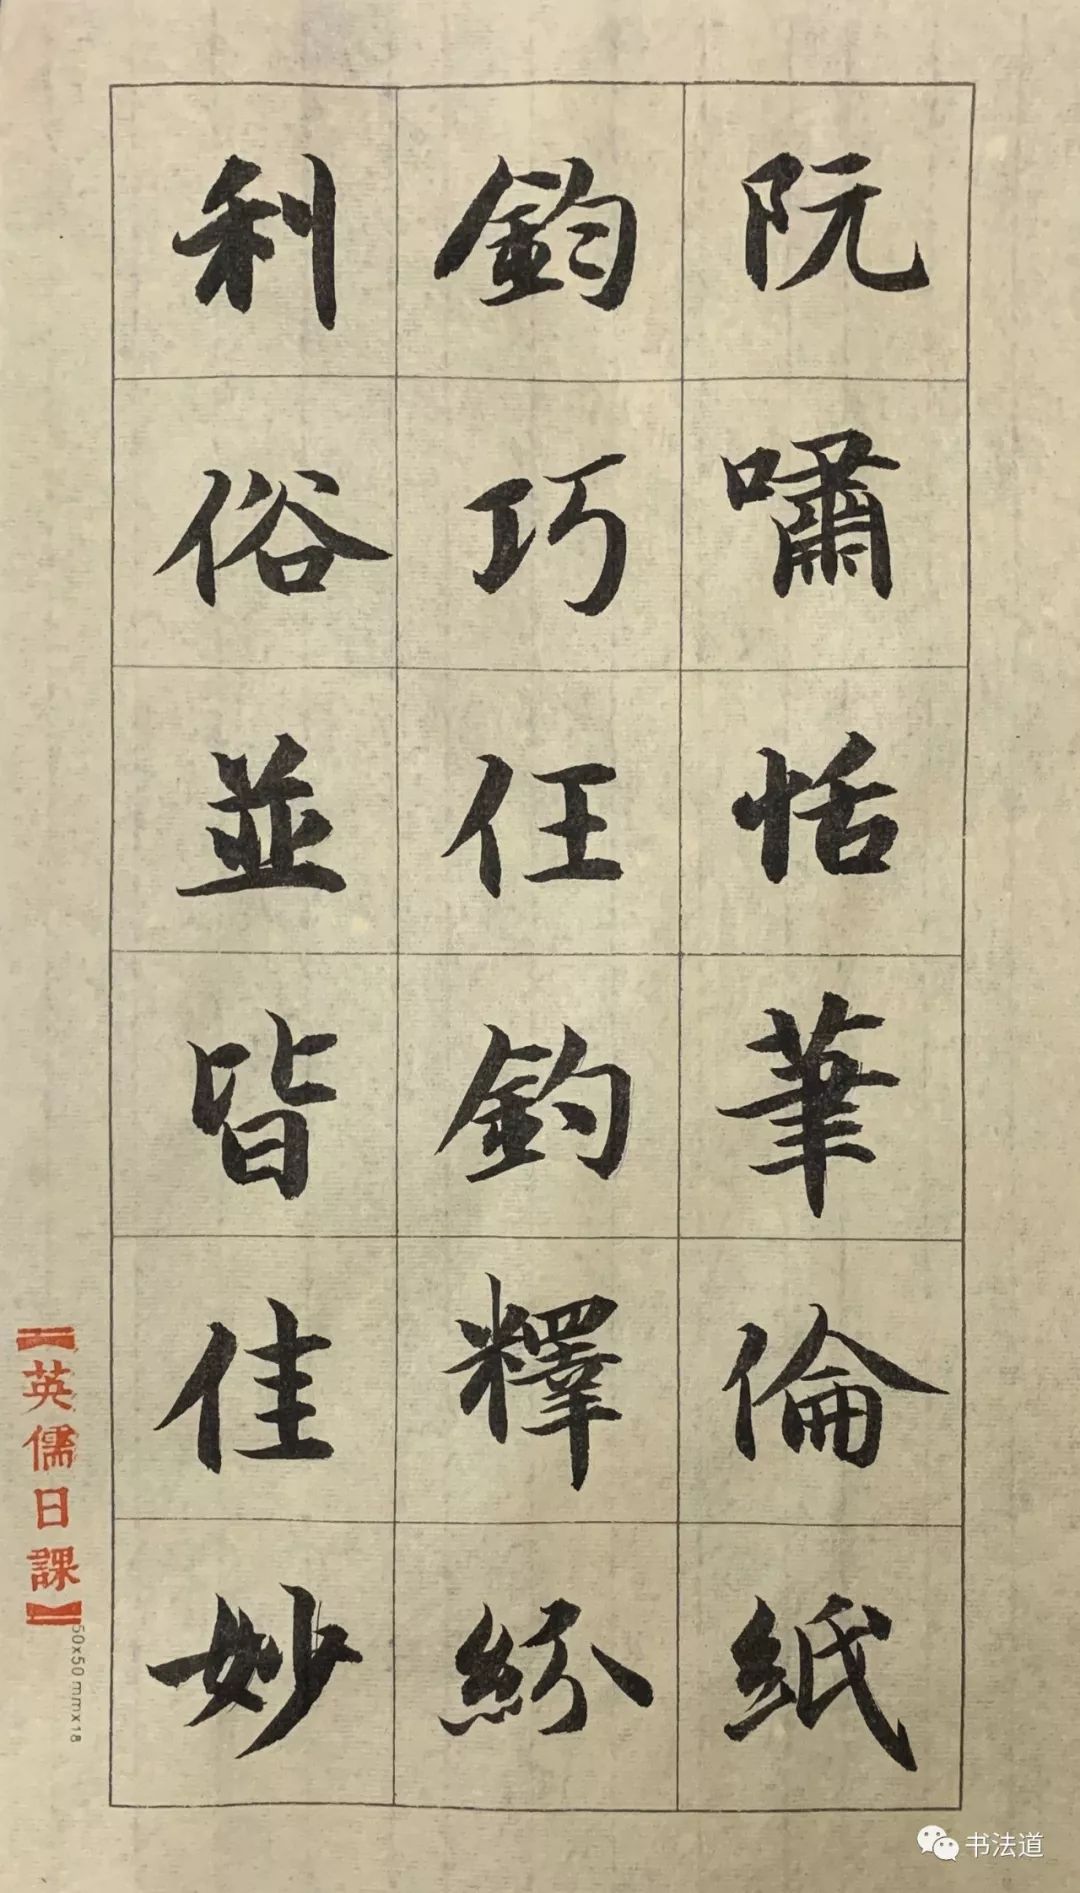 阮嘯恬筆倫紙
鈞巧任釣釋紛
利俗並皆佳妙
【英儒日課】
50x50mmx18
书法道